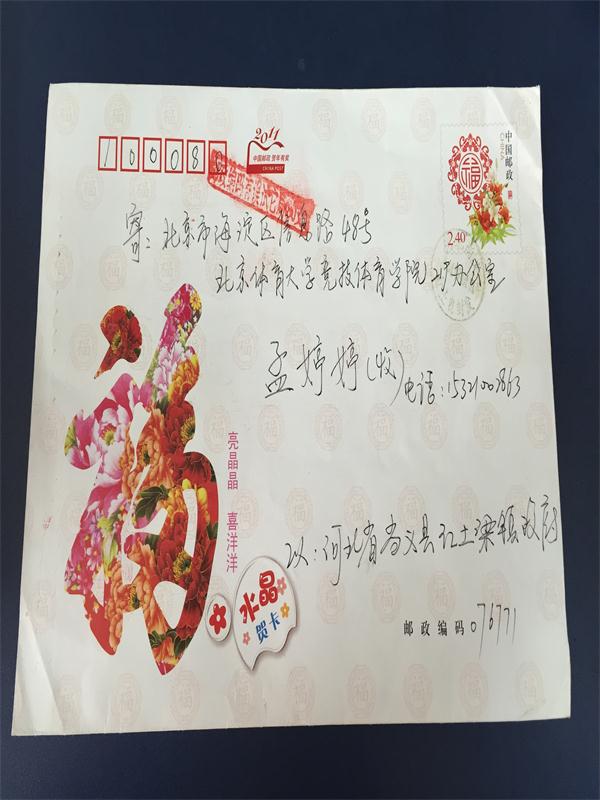 10008
2011
中国邮政 贺年有奖
CHINA POST
中国邮政
CHINA
福
2.40
寄:北京市海淀区信息路48号
北京体育大学竞技体育学院217办公室
孟婷婷(收) 电话:15321002863
福
亮晶晶 喜洋洋
水晶
贺卡
以:河北省尚义县红土梁镇政府
邮政编码 076771